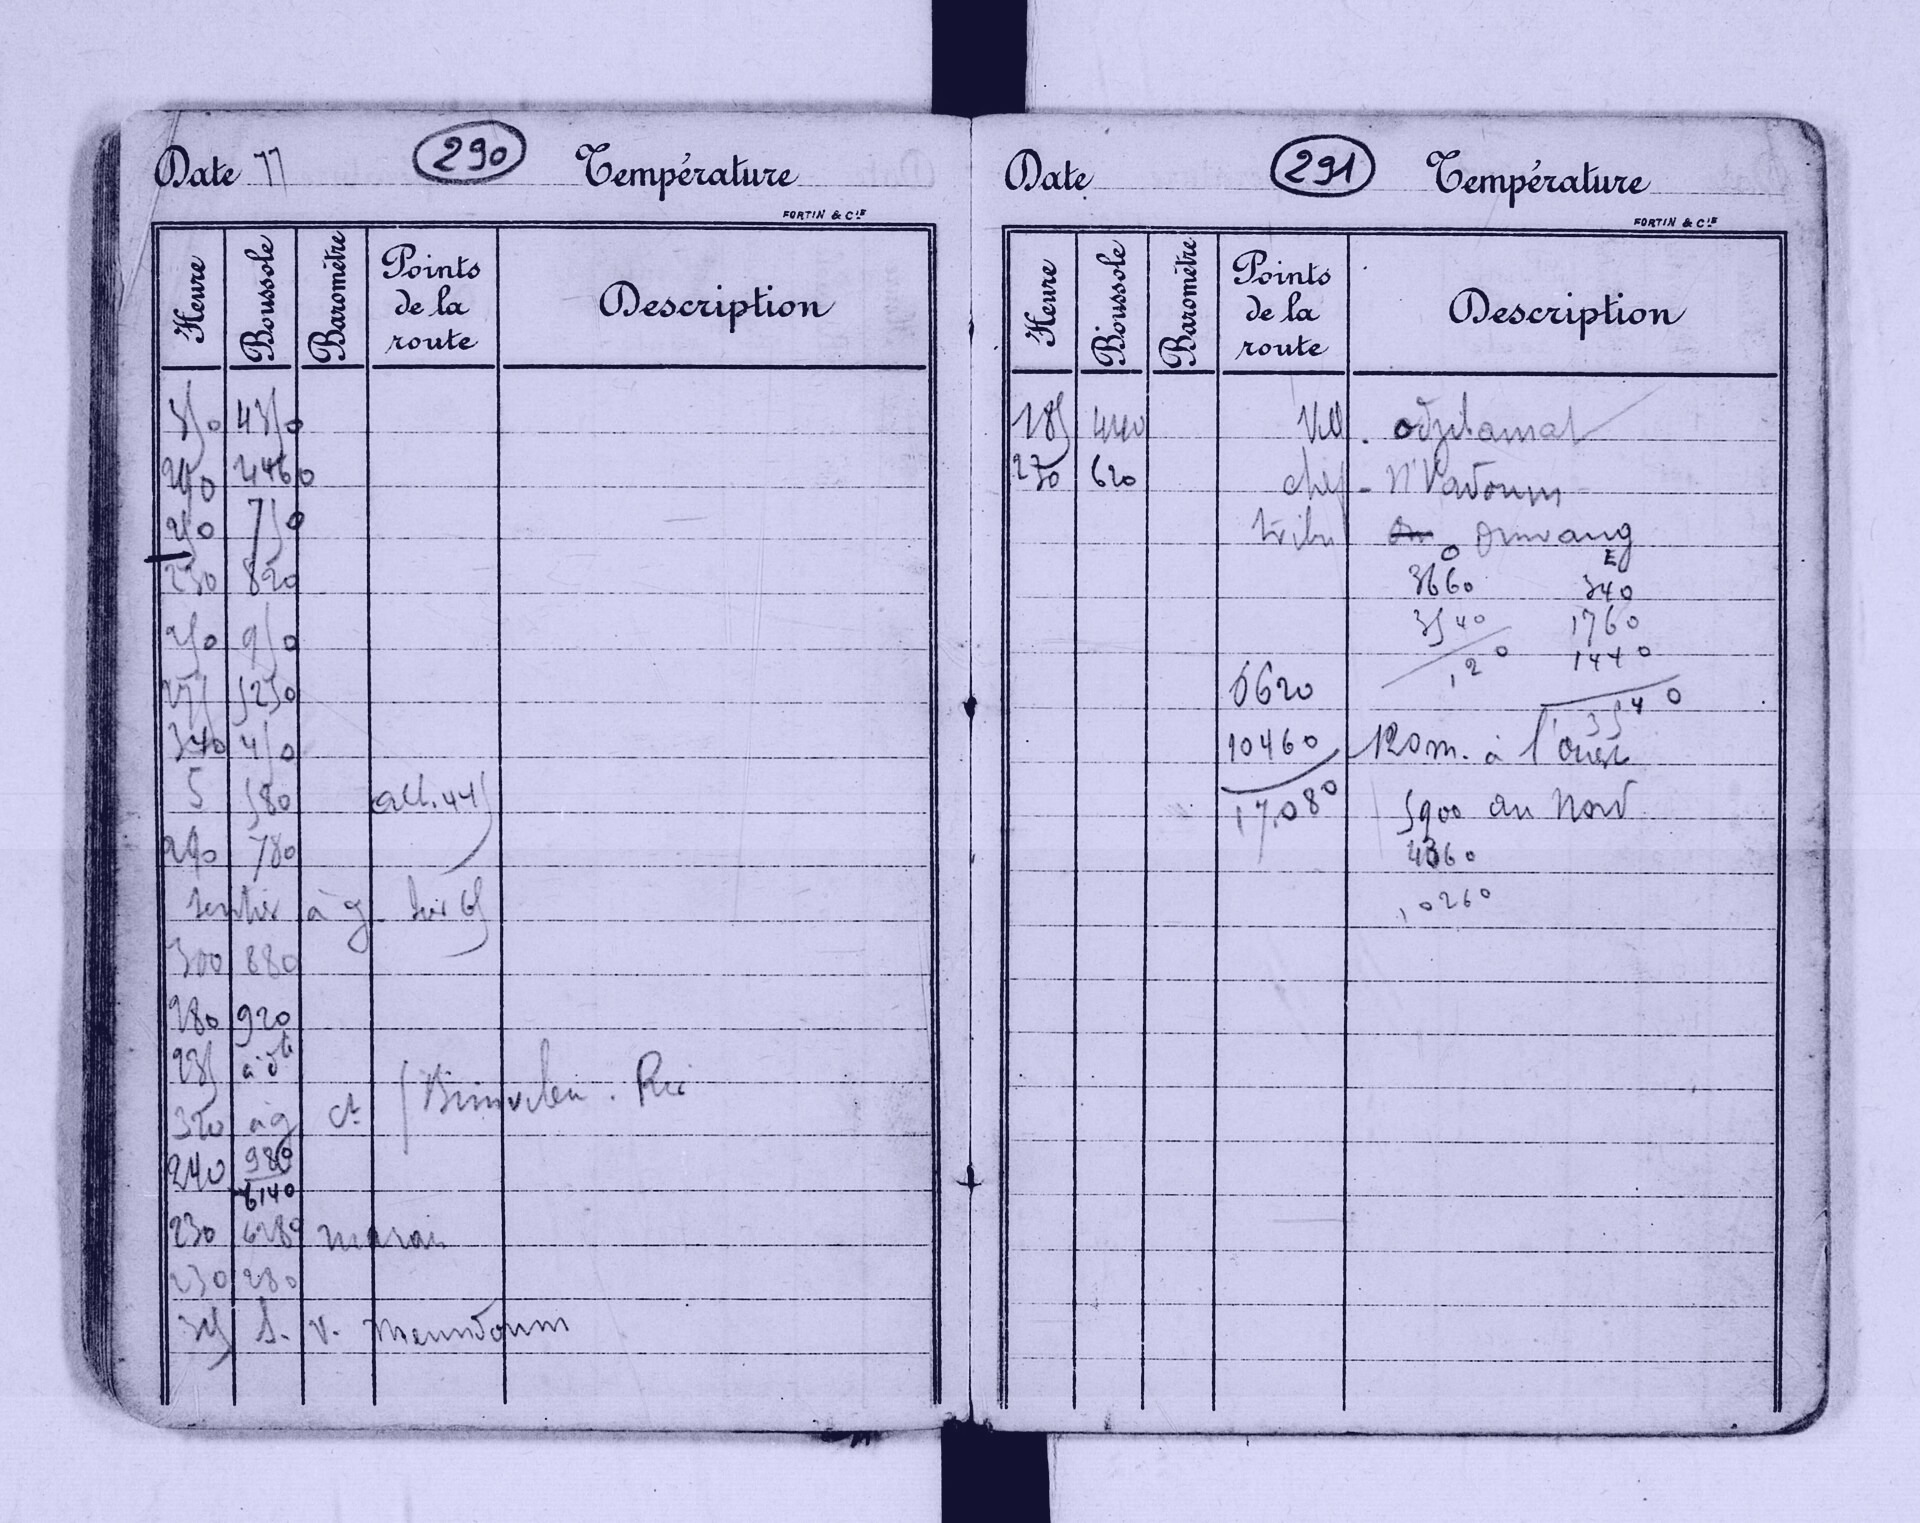 Date 11 290 Température
FORTIN & Cie
Heure Boussole Baromètre Points de la route Description
350 4350
290 4460
250 750
230 820
250 950
275 5250
340 450
5 580 alt. 445
290 780
sentier à g.
300 880
280 920
285 à dte
320 à g
240 980
6140
230 6280 marais
230 280
S. V.
Date 291 Température
FORTIN & Cie
Heure Boussole Baromètre Points de la route Description
285 440 Vill. Odzilamat
230 620 chef - N'Vadoum
tribu Omvang
O E
3660 340
3540 1760
120 1440
6620 3540
10460 120m. à l'Ouest
17.080 5900 au Nord
4360
10260